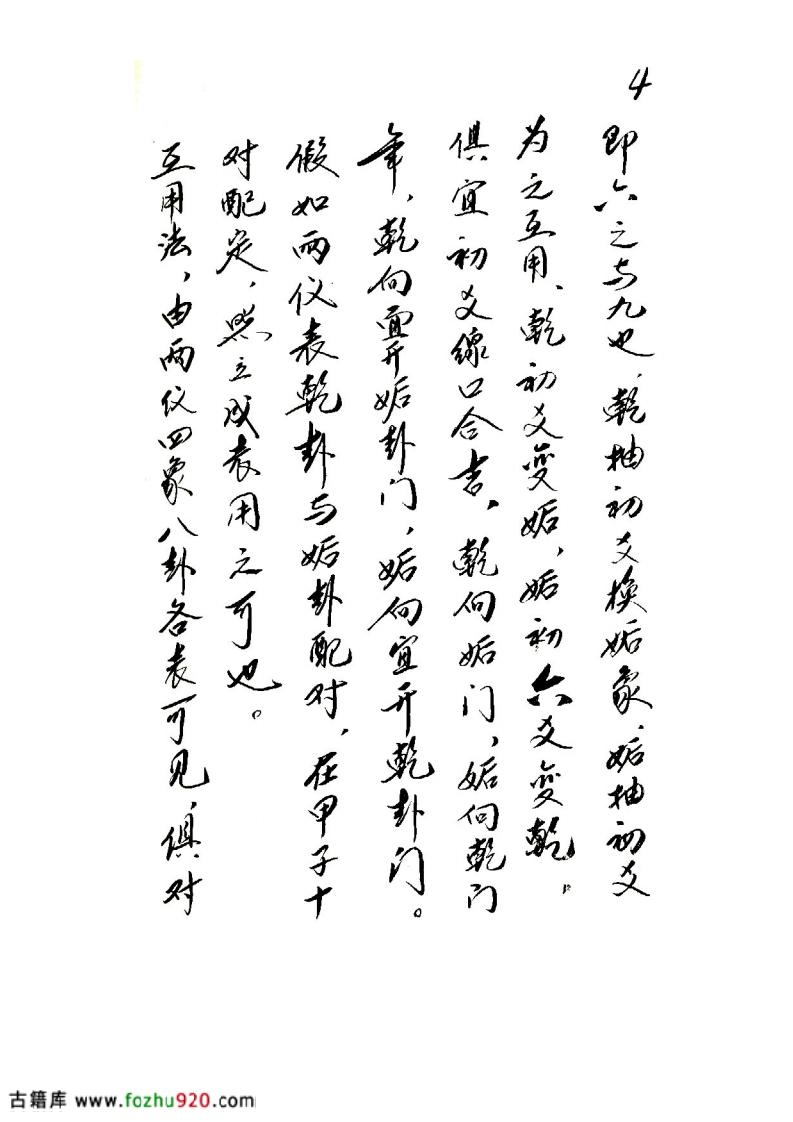 4
即六之与九也、乾抽初爻换姤象、姤抽初爻
为之互用、乾初爻变姤，姤初六爻变乾。
俱宜初爻線口合吉，乾向姤门，姤向乾门
年，乾向宜开姤卦门，姤向宜开乾卦门。
假如两仪表乾卦与姤卦配对，在甲子十
对配定，照立成表用之可也。
互用法，由两仪四象八卦各表可见，俱对
古籍库 www.fozhu920.com